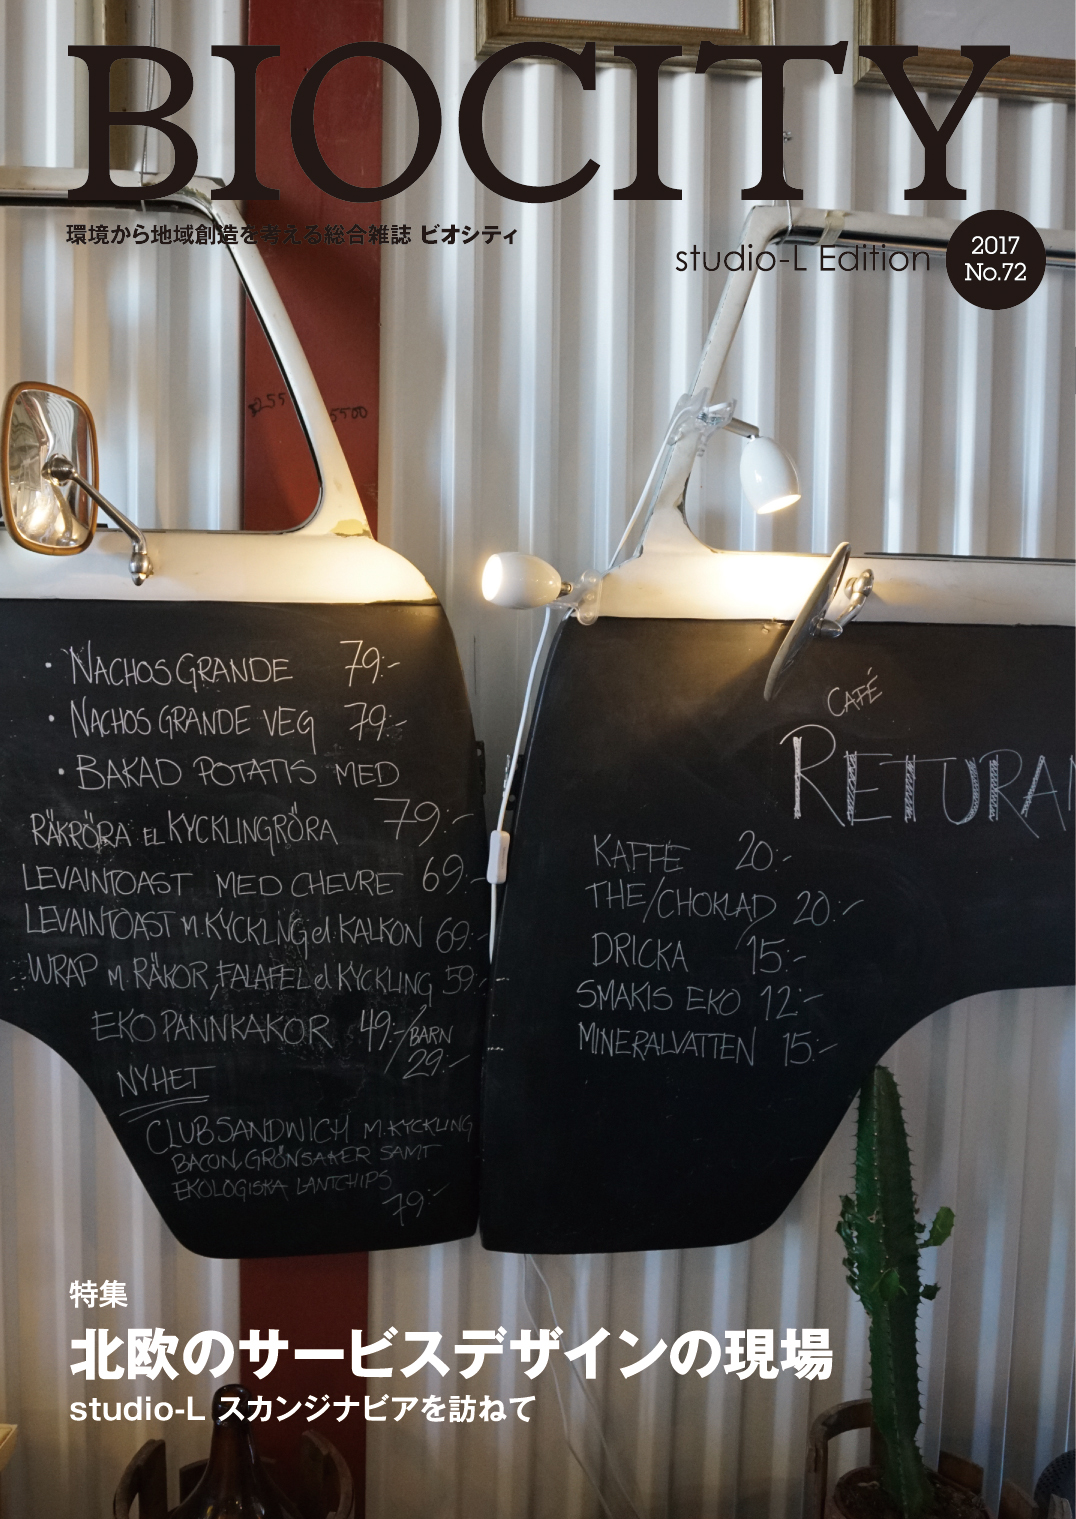 BIOCITY
環境から地域創造を考える総合雑誌 ビオシティ
studio-L Edition
2017
No.72
5500
• NACHOS GRANDE 79:-
• NACHOS GRANDE VEG 79:-
• BAKAD POTATIS MED
RÄKRÖRA EL KYCKLINGRÖRA 79:-
LEVAINTOAST MED CHEVRE 69:-
LEVAINTOAST M.KYCKLNG el KALKON 69:-
WRAP M. RÄKOR, FALAFEL el KYCKLING 59:-
EKO PANNKAKOR 49:-/BARN
29:-
NYHET
CLUBSANDWICH M.KYCKLING
BACON, GRÖNSAKER SAMT
EKOLOGISKA LANTCHIPS
79:-
CAFÉ
RETURAN
KAFFE 20:-
THE/CHOKLAD 20:-
DRICKA 15:-
SMAKIS EKO 12:-
MINERALVATTEN 15:-
特集
北欧のサービスデザインの現場
studio-L スカンジナビアを訪ねて